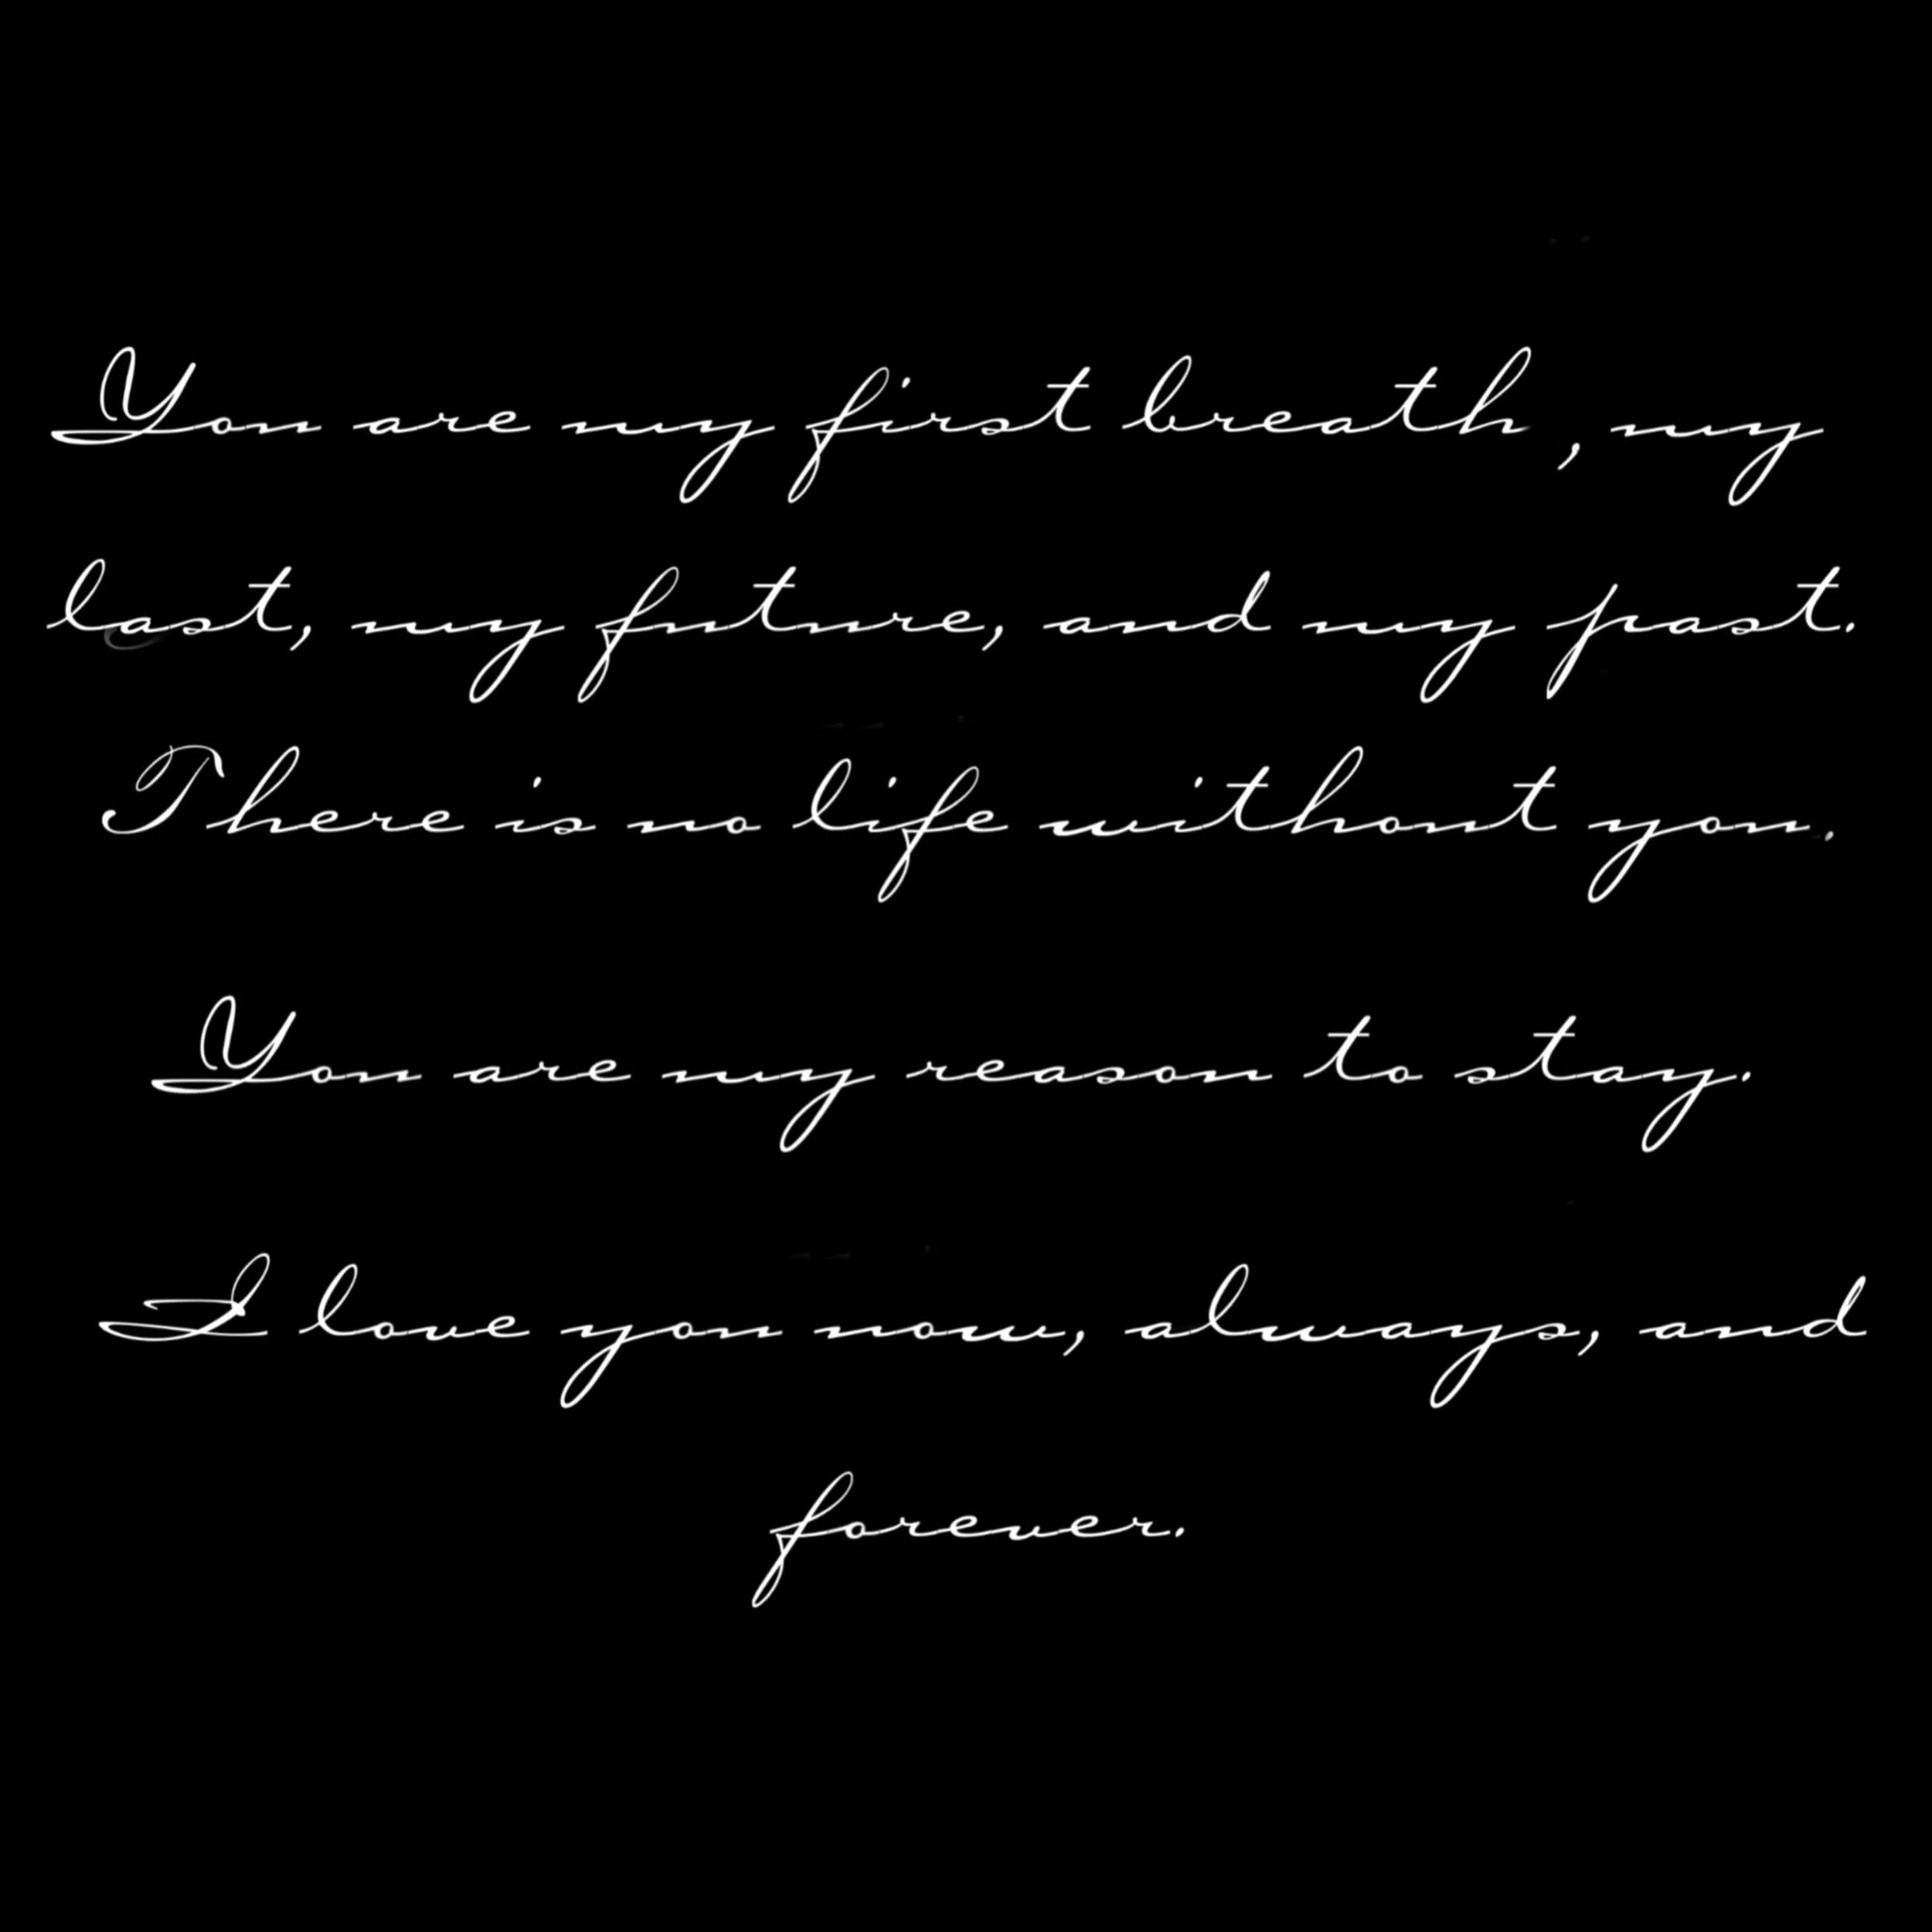 You are my first breath, my
last, my future, and my past.
There is no life without you.
You are my reason to stay.
I love you now, always, and
forever.